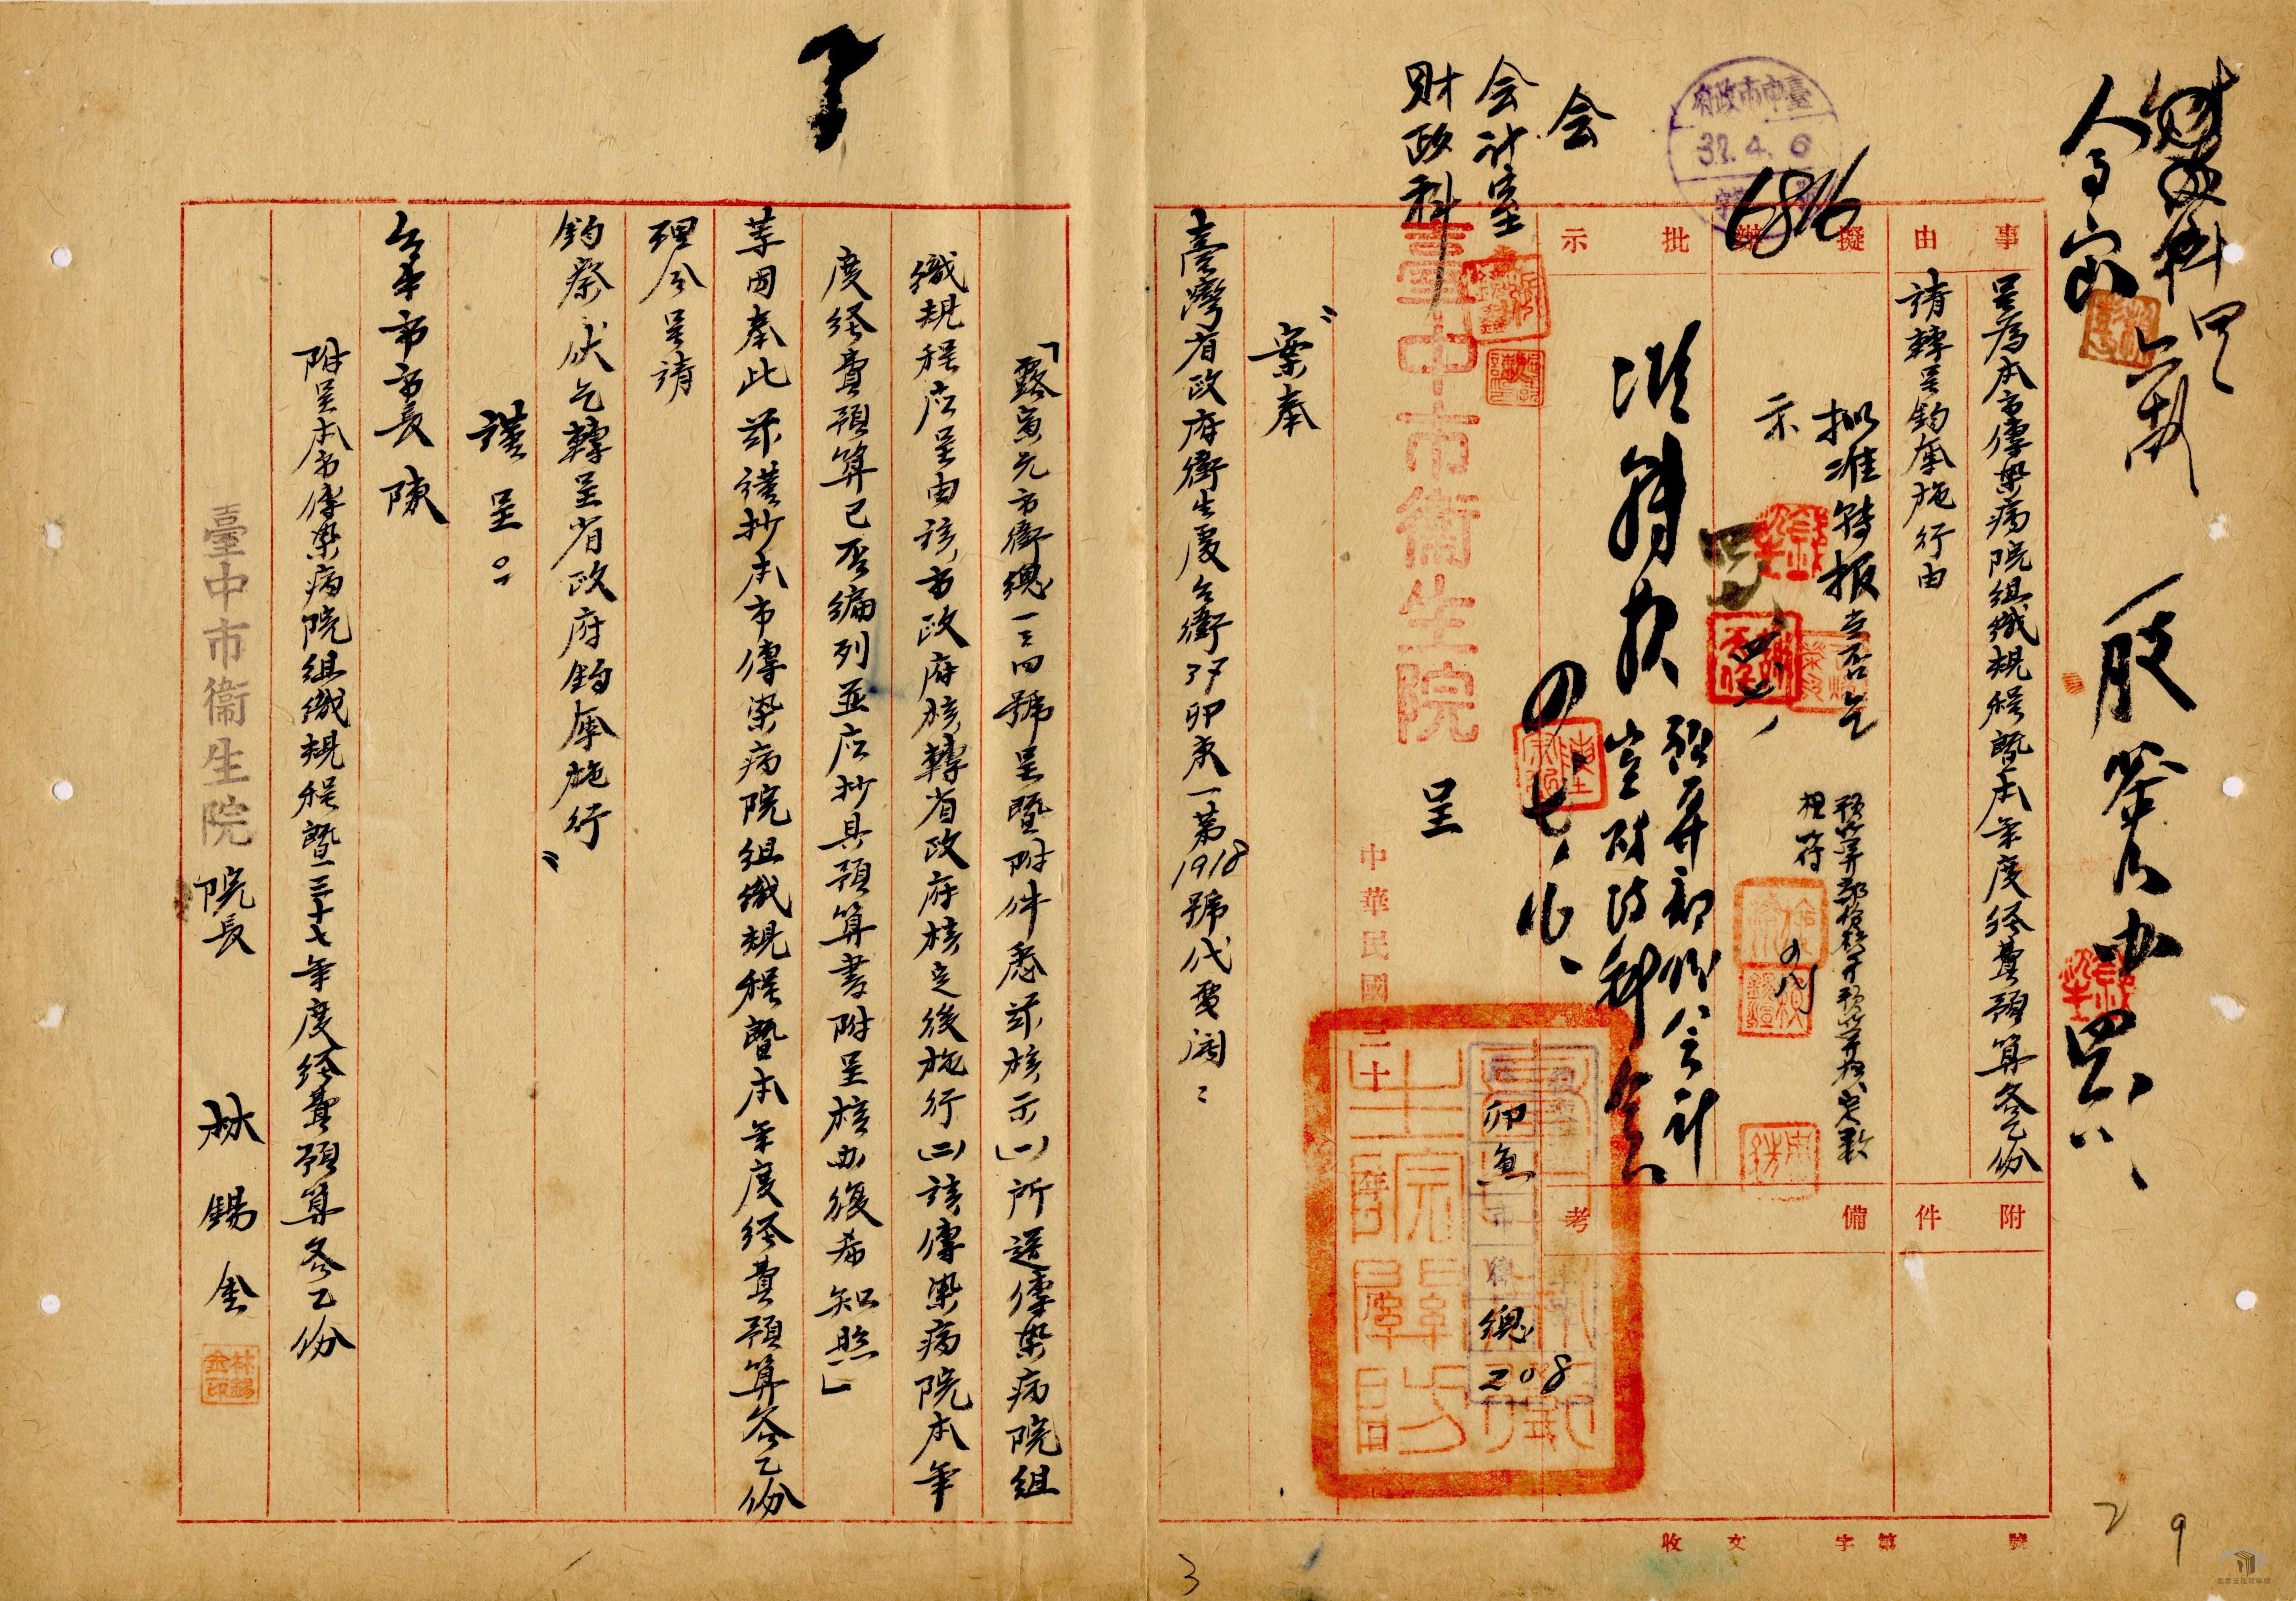 財政科
会計室
会
臺中市政府
37.4.6
6816
事由
擬辦
批示
呈為本市傳染病院組織規程暨本年度経費預算各乙份
請轉呈鈞府施行由
擬准轉报當否乞
示
預算部份核與預算核定數
相符
准轉報
預算部份会計
室財政科会
附件
備考
臺中市衛生院
呈
中華民國三十
卯魚
市衛總
208
〝案奉
臺灣省政府衛生處公衛37卯東一第1918號代電開：
「露寅元市衛總一三四號呈暨附件悉茲核示(一)所送傳染病院組
織規程应呈由該市政府核轉省政府核定後施行(二)該傳染病院本年
度経費預算已否編列並应抄具預算書附呈核办復希知照」
等因奉此茲謹抄本市傳染病院組織規程暨本年度経費預算各乙份
理合呈請
鈞察伏乞轉呈省政府鈞奪施行〞
謹呈。
台中市市長陳
附呈本市傳染病院組織規程暨三十七年度経費預算各乙份
臺中市衛生院院長 林錫金
林錫金印
收文 字第 號
29
3